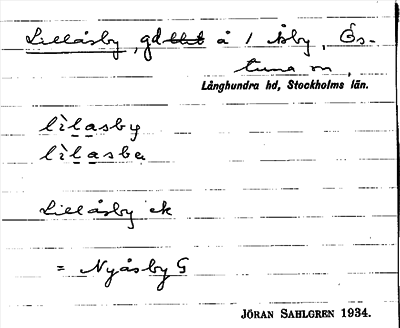 Lillåsby, gd å 1 Åby, Ös-
tuna sn,
Långhundra hd, Stockholms län.
lìlasby
lìlasbe
Lillåsby ek
= Nyåsby G
JÖRAN SAHLGREN 1934.